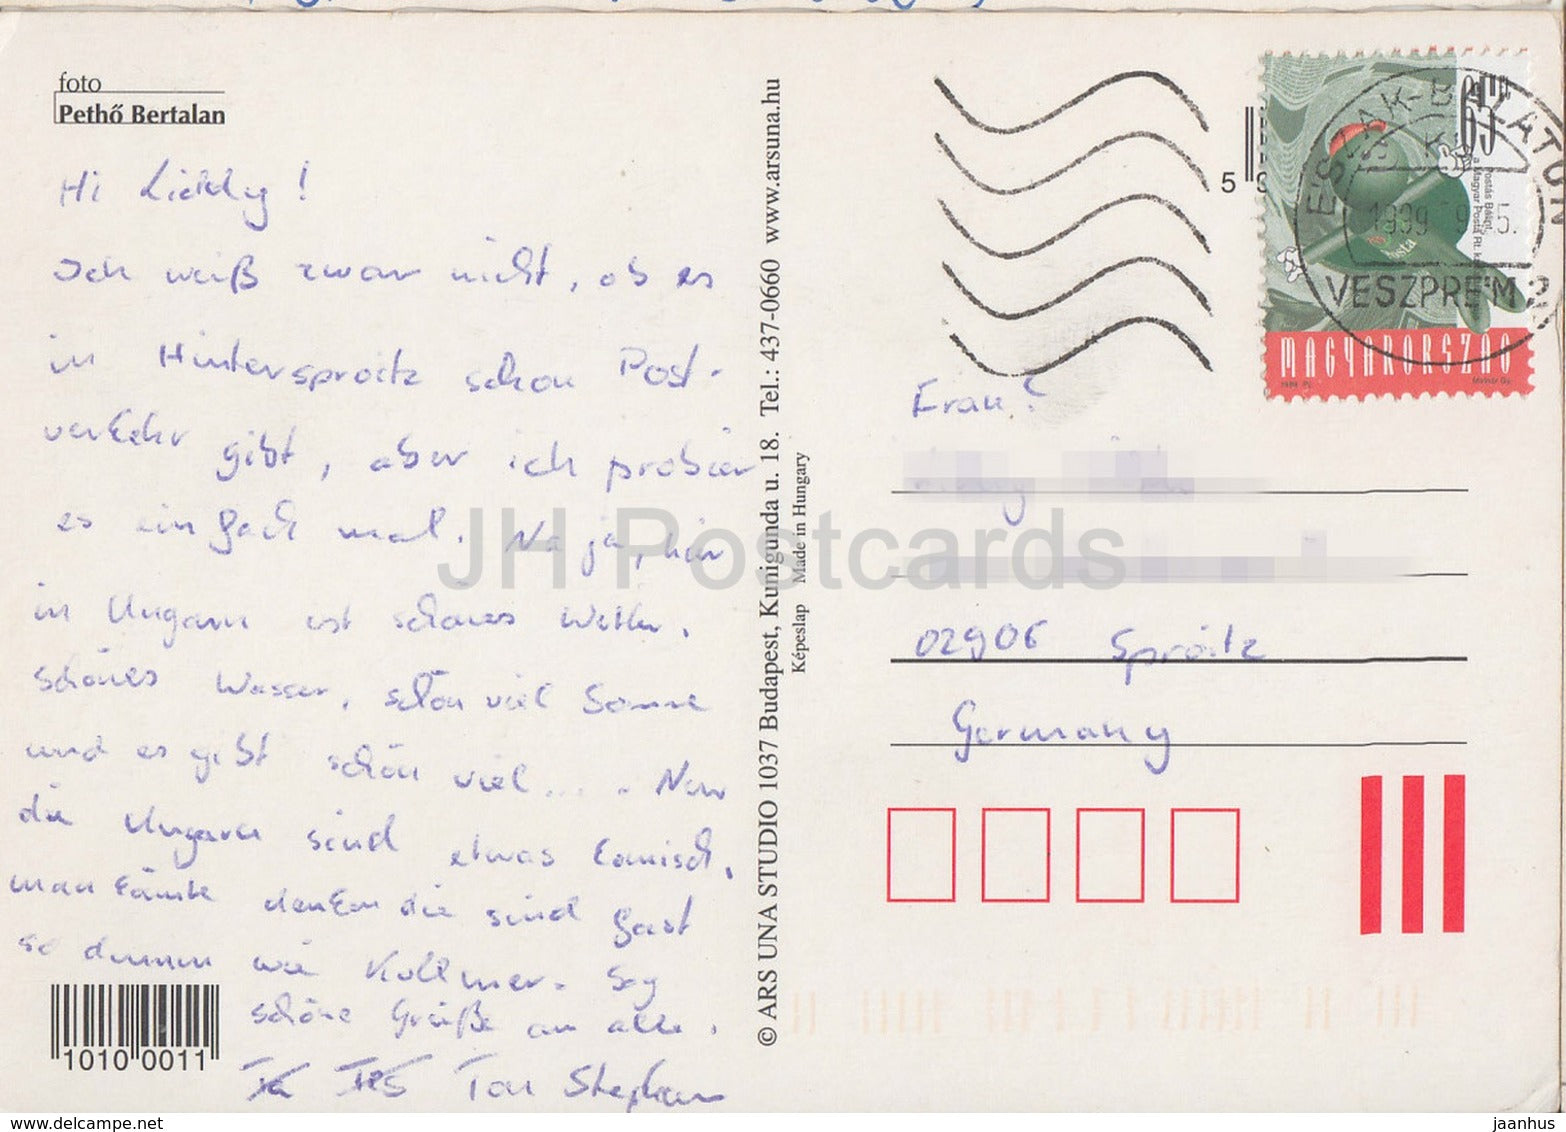 foto
Pethő Bertalan
Hi Liddy!
Ich weiß zwar nicht, ob es
in Hintersproitz schon Post-
verkehr gibt, aber ich probier
es einfach mal. Na ja, hier
in Ungarn ist schönes Wetter,
schönes Wasser, schön viel Sonne
und es gibt schön viel.... Nur
die Ungarn sind etwas komisch,
man könnte denken die sind fast
so dumm wie Kollmer. Sag
schöne Grüße an alle.
Ton Stephan
1010 0011
© ARS UNA STUDIO 1037 Budapest, Kunigunda u. 18. Tel.: 437-0660 www.arsuna.hu
Képeslap Made in Hungary
5
65
Postás Bálint,
a Magyar Posta Rt. k
ÉSZAK-BALATON
1999 9. 5.
VESZPRÉM 2
MAGYARORSZÁG
Frau
02906 Sproitz
Germany
JH Postcards
www.delcampe.net
jaanhus